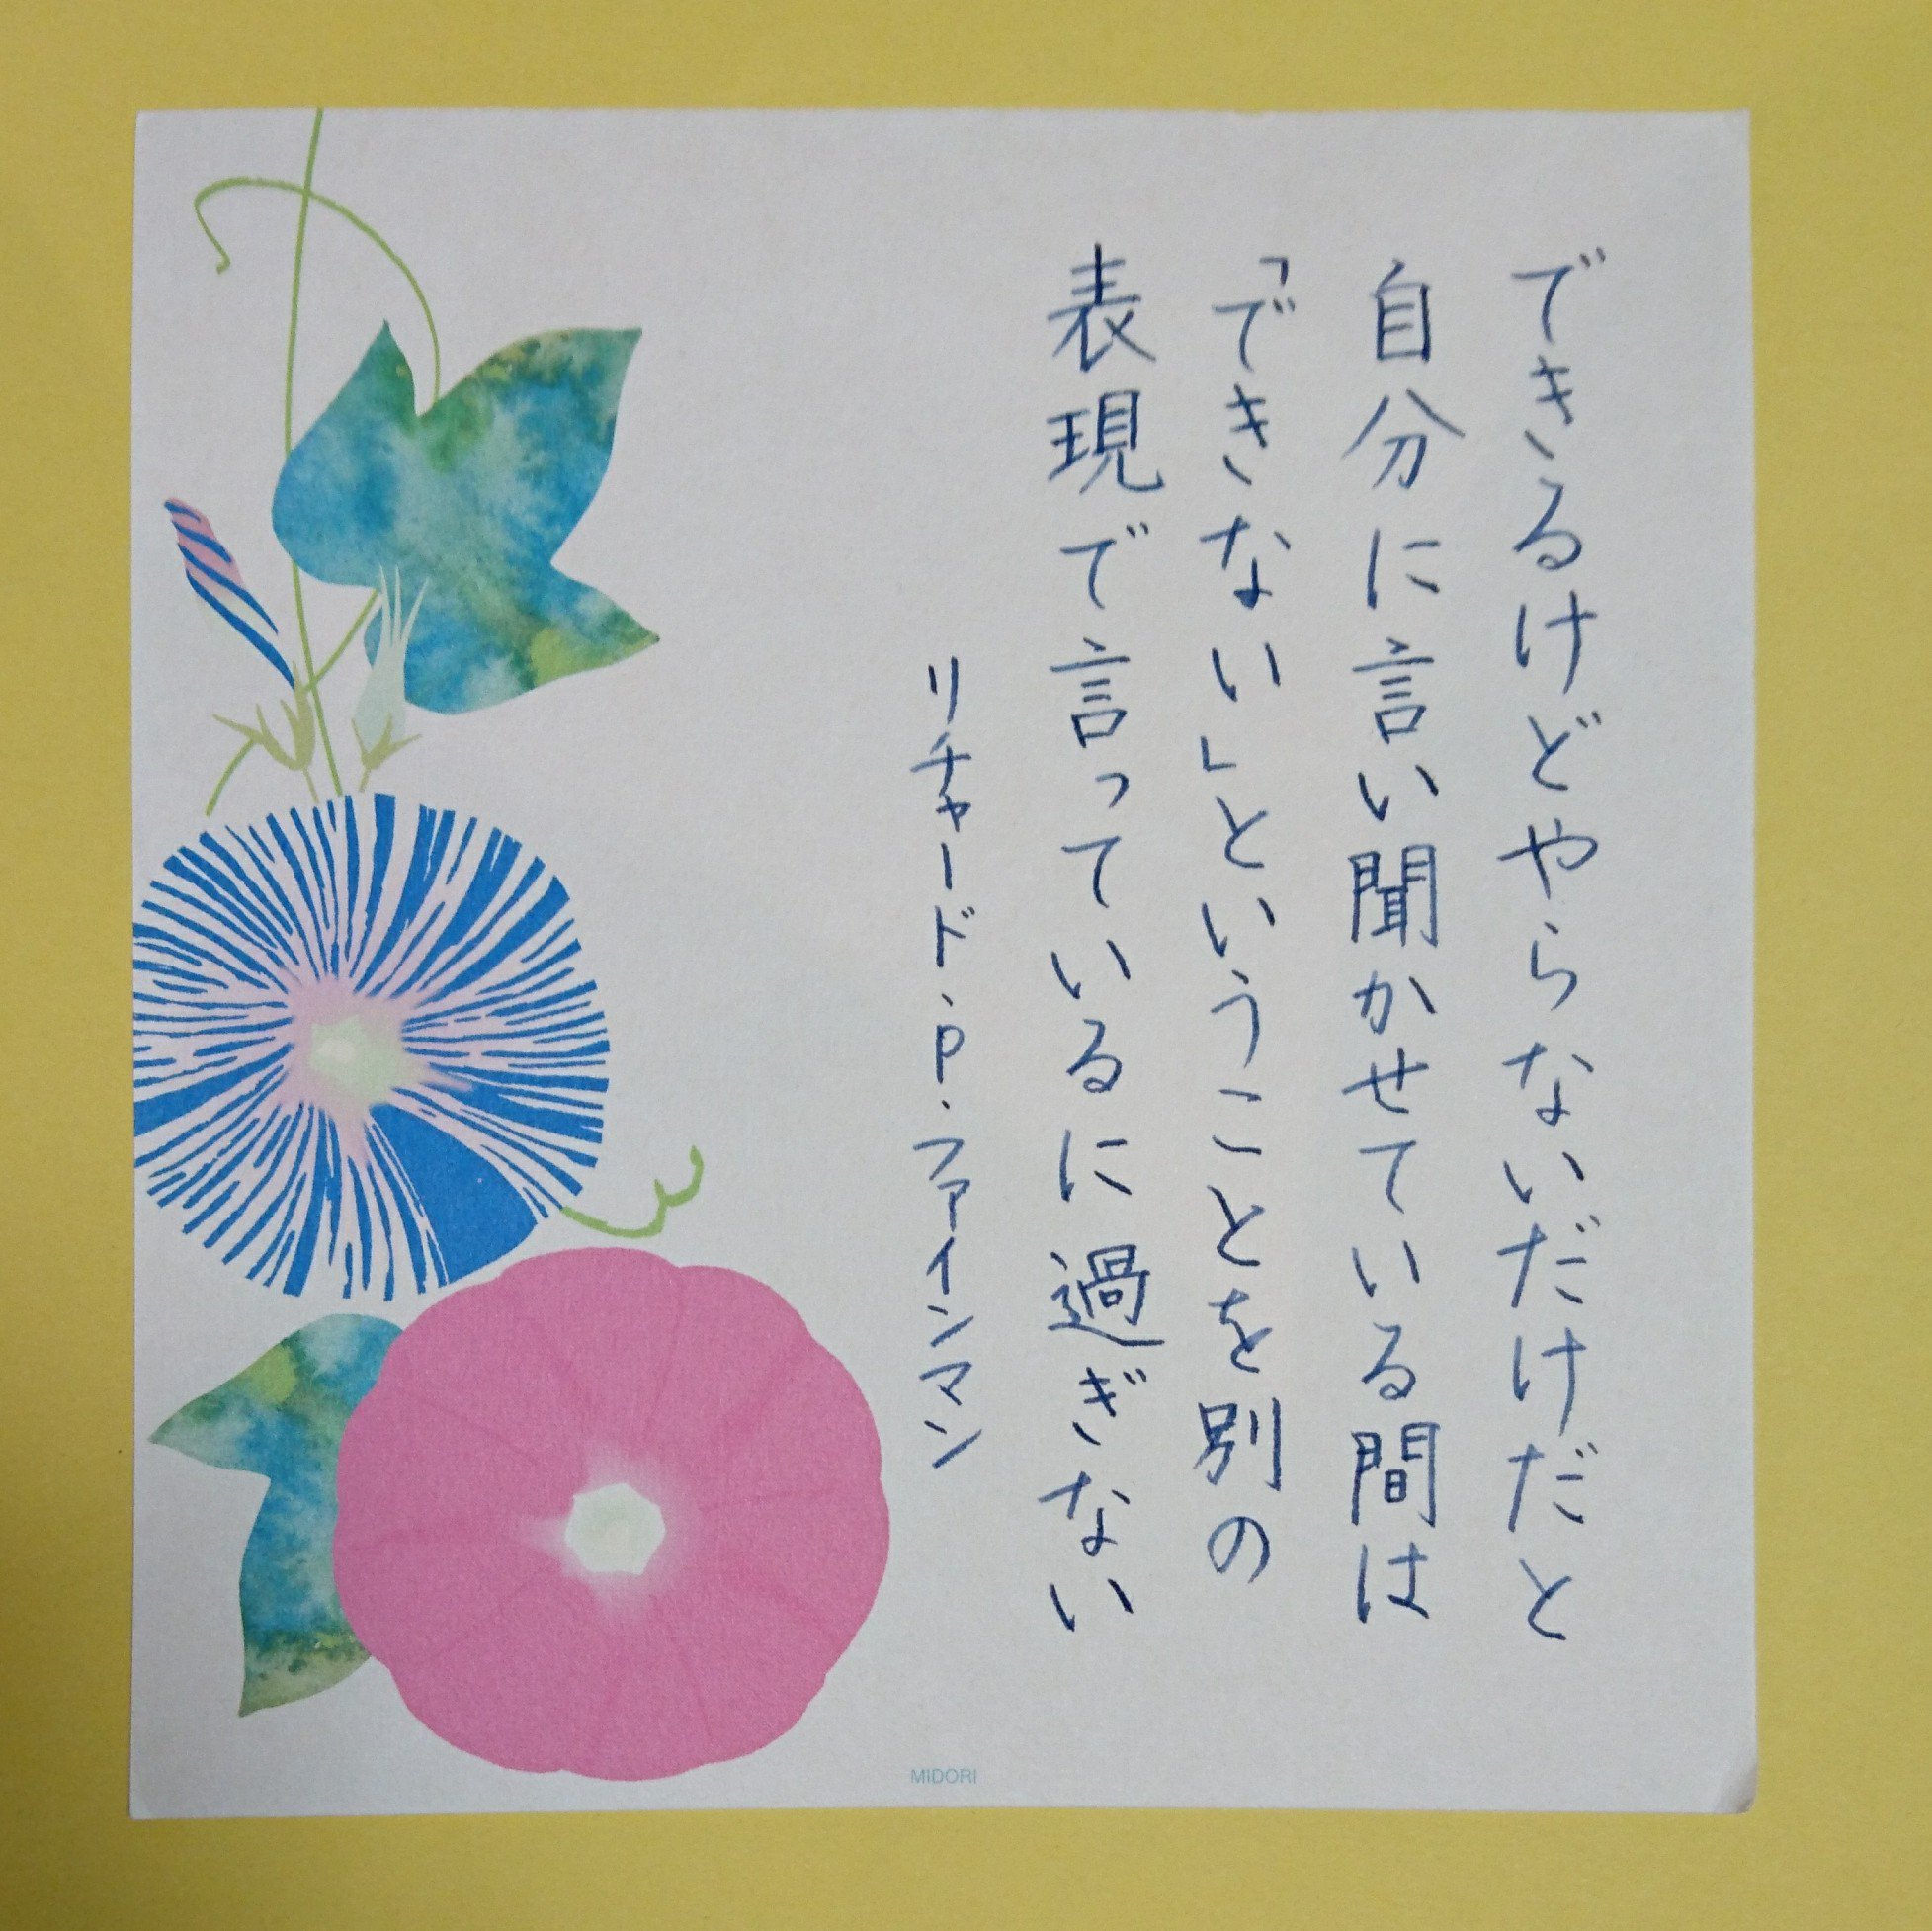 できるけどやらないだけだと
自分に言い聞かせている間は
「できない」ということを別の
表現で言っているに過ぎない
リチャード・P・ファインマン
MIDORI